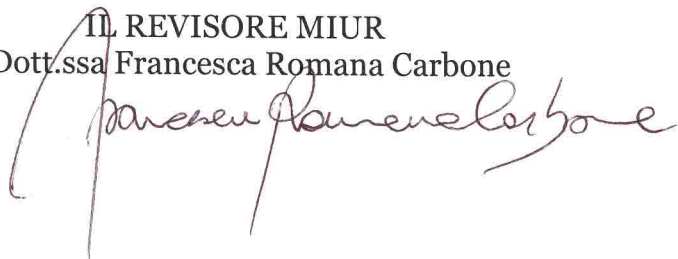 IL REVISORE MIUR
Dott.ssa Francesca Romana Carbone
Francesca Romana Carbone